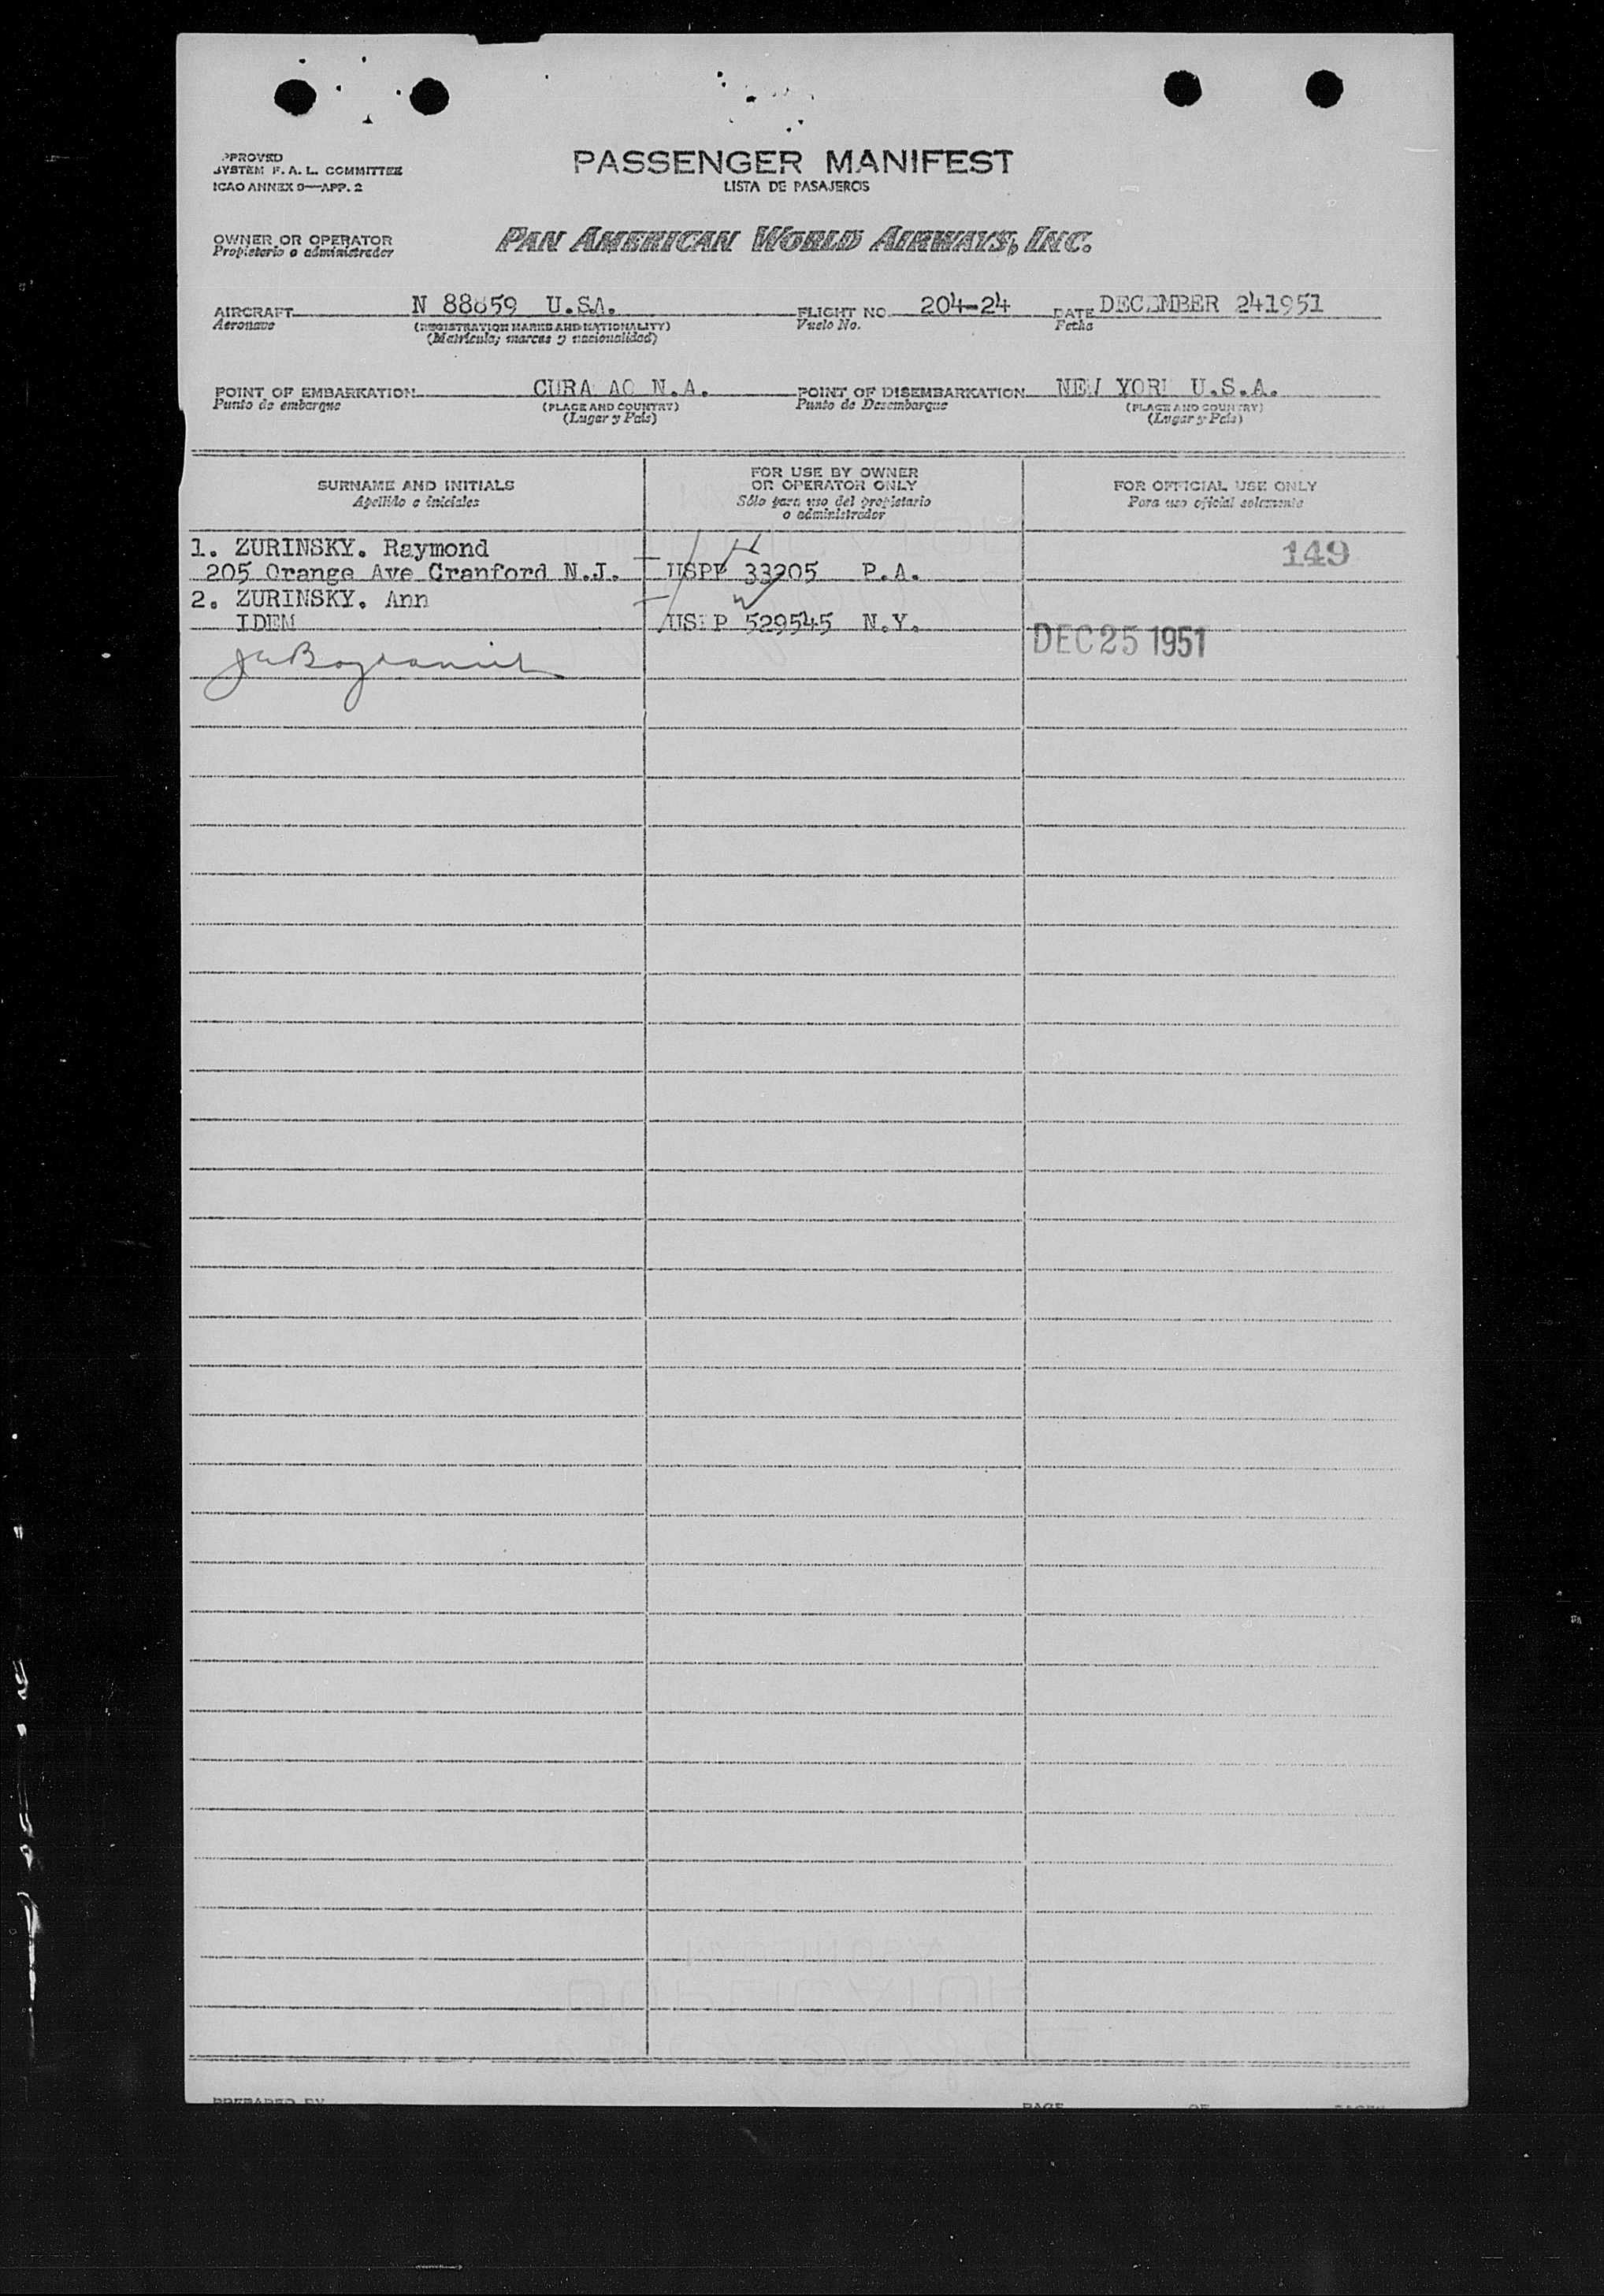 PPROVED
SYSTEM F. A. L. COMMITTEE
ICAO ANNEX 9—APP. 2
PASSENGER MANIFEST
LISTA DE PASAJEROS
OWNER OR OPERATOR
Propietario o administrador
PAN AMERICAN WORLD AIRWAYS, INC.
AIRCRAFT N 88859 U.S.A. FLIGHT NO. 204-24 DATE DECEMBER 24 1951
Aeronave (REGISTRATION MARKS AND NATIONALITY) Vuelo No. Fecha
(Matrícula; marcas y nacionalidad)
POINT OF EMBARKATION CURA AO N.A. POINT OF DISEMBARKATION NEW YORK U.S.A.
Punto de embarque (PLACE AND COUNTRY) Punto de Desembarque (PLACE AND COUNTRY)
(Lugar y País) (Lugar y País)
SURNAME AND INITIALS
Apellido e iniciales
FOR USE BY OWNER
OR OPERATOR ONLY
Sólo para uso del propietario
o administrador
FOR OFFICIAL USE ONLY
Para uso oficial solamente
1. ZURINSKY. Raymond 149
205 Orange Ave Cranford N.J. USPP 33205 P.A.
2. ZURINSKY. Ann
IDEM US P 529545 N.Y.
DEC 25 1951
PREPARED BY PAGE OF PAGES